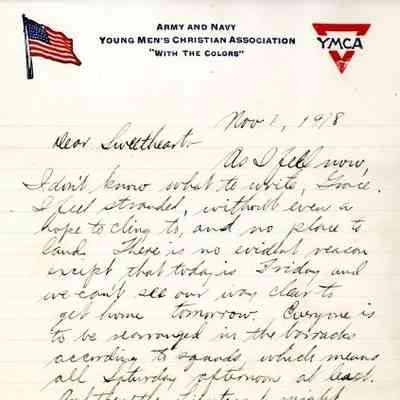 ARMY AND NAVY
YOUNG MEN'S CHRISTIAN ASSOCIATION
"WITH THE COLORS"
YMCA
Nov 1, 1918
Dear Sweetheart-
As I feel now,
I don't know what to write, Grace.
I feel stranded, without even a
hope to cling to, and no place to
land. There is no evident reason
except that today is Friday and
we can't see our way clear to
get home tomorrow. Everyone is
to be rearranged in the barracks
according to squads, which means
all Saturday afternoon at least.
And then the Lieutenant might